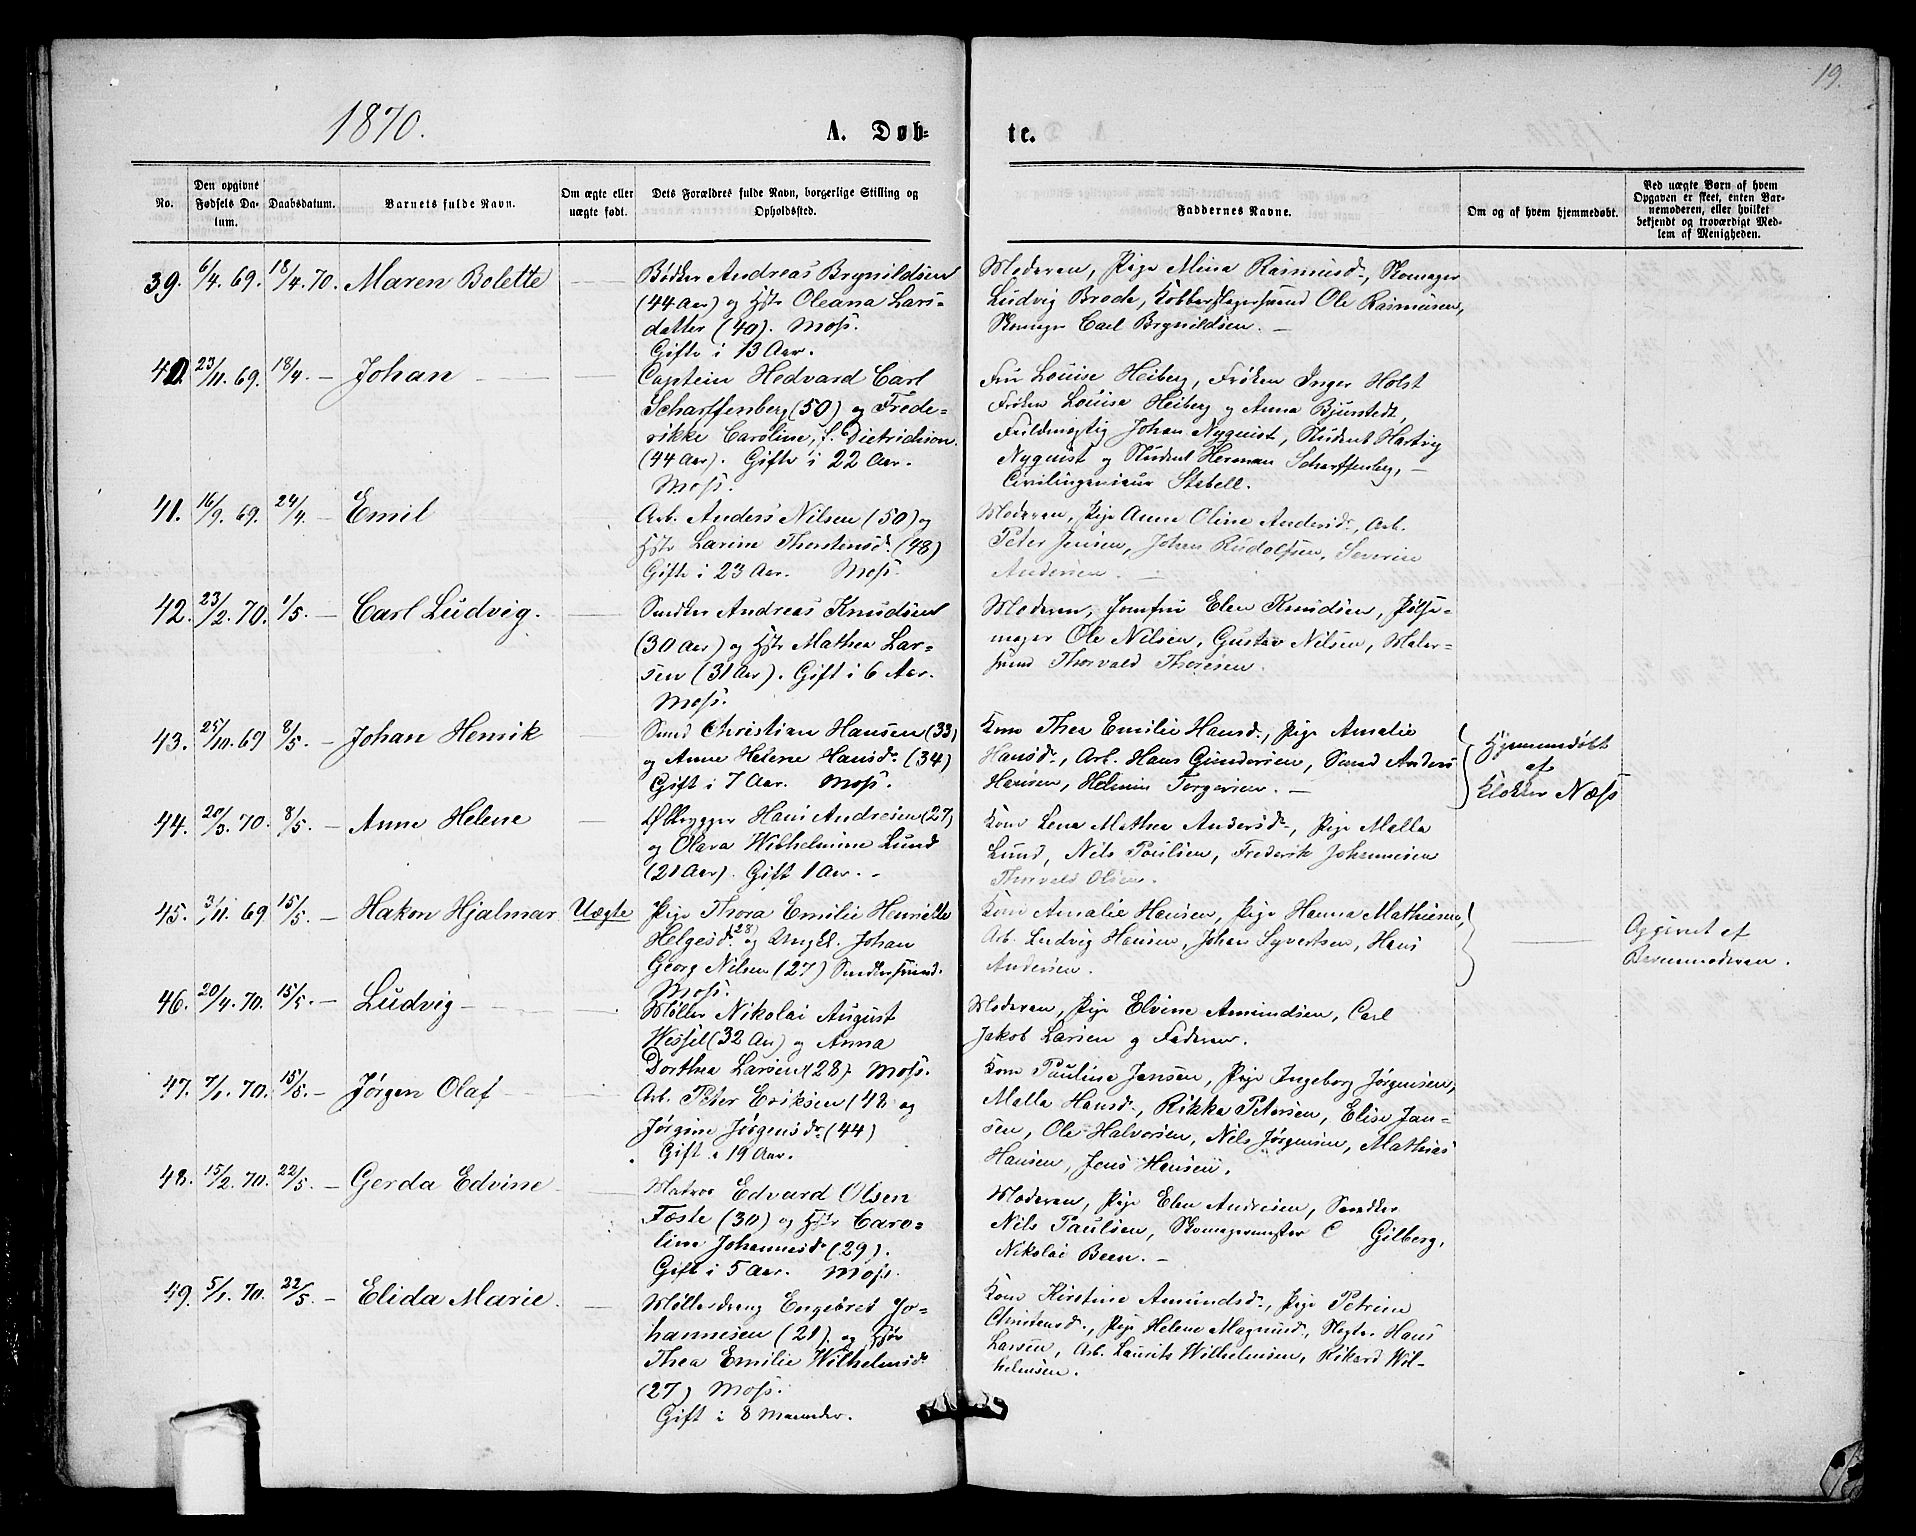 19.
1870.
A. Døb-
te.
No.
Den opgivne Fødsels Da-tum.
Daabsdatum.
Barnets fulde Navn.
Om ægte eller uægte født.
Dets Forældres fulde Navn, borgerlige Stilling og Opholdssted.
Faddernes Navne.
Om og af hvem hjemmedøbt.
Ved uægte Børn af hvem Opgaven er skeet, enten Bar-nemoderen, eller hvilket bekjendt og troværdigt Med-lem af Menigheden.
39. 6/4. 69. 18/4. 70. Maren Bolette
Bødker Andreas Brynildsen
(44 Aar) og Hstr Oleana Lars-
datter (40). Moss.
Gifte i 13 Aar.
Moderen, Pige Mina Rasmusd., Skomager
Ludvig Brode, Kobberslagersvend Ole Rasmusen,
Skomager Carl Brynildsen. —
40. 23/11. 69. 18/4 — Johan
Captein Hedvard Carl
Scharffenberg (50) og Frede-
rikke Caroline, f. Dietrichson.
(44 Aar). Gifte i 22 Aar.
Moss.
Fru Louise Heiberg, Frøken Inger Holst
Frøken Louise Heiberg og Anna Bjurstedt,
Fuldmægtig Johan Nyquist, Student Hartvig
Nyquist og Student Herman Scharffenberg, —
Civilingenieur Stabell.
41. 16/9. 69. 24/4 — Emil
Arb. Anders Nilsen (50) og
Hstr Larine Thorstensd. (48)
Gifte i 23 Aar. Moss.
Moderen, Pige Anne Oline Andersd., Arb.
Peter Jensen, Johan Rudolfsen, Severin
Andersen. —
42. 23/2. 70. 1/5. — Carl Ludvig.
Snedker Andreas Knudsen
(30 Aar) og Hstr Mathea Lar-
sen (31 Aar). Gift i 6 Aar.
Moss.
Moderen, Jomfru Elen Knudsen, Pølse-
mager Ole Nilsen, Gustav Nilsen, Maler-
svend Thorvald Thoresen.
43. 25/10. 69 8/5. — Johan Henrik
Smed Christian Hansen (33)
og Anne Helene Hansd. (34)
Gift i 7 Aar. Moss.
Kone Thea Emilie Hansd., Pige Amalie
Hansd., Arb. Hans Gundersen, Smed Anders
Hansen, Helmin Torgersen. —
Hjemmedøbt
af
Klokker Næss
44. 20/3. 70. 8/5. — Anne Helene
Ølbrygger Hans Andresen (27)
og Olava Wilhelmine Lund
(21 Aar). Gift 1 Aar. -
Kone Lena Mathea Andersd., Pige Malla
Lund, Nils Paulsen, Frederik Johannesen
Thorvald Olsen.
45. 3/11. 69 15/5. — Hakon Hjalmar Uægte
Pige Thora Emilie Henriette
Helgesd. (28) og Ungkl. Johan
Georg Nilsen (27) Snedkersvend.
Moss.
Kone Amalie Hansen, Pige Hanna Mathiesen,
Arb. Ludvig Hansen, Johan Syvertsen, Hans
Andersen.
Opgivet af
Barnemoderen.
46. 20/4. 70. 15/5. — Ludvig
Møller Nikolai August
Hessel (32 Aar) og Anna
Dorthea Larsen (28). Moss.
Moderen, Pige Elvine Amundsen, Carl
Jakob Larsen og Faderen.
47. 7/1. 70. 15/5. — Jørgen Olaf
Arb. Peter Eriksen (48 og
Jørgine Jørgensd. (44)
Gift i 19 Aar.
Kone Pauline Jensen, Pige Ingeborg Jørgensen,
Malla Hansd., Rikka Petersen, Elise Jan-
sen, Ole Halvorsen, Nils Jørgensen, Mathias
Hansen, Jens Hansen.
48. 15/2. 70. 22/5. — Gerda Edvine
Matros Edvard Olsen
Foste (30) og Hstr Caro-
line Johannesd. (29).
Gift i 5 Aar. Moss.
Moderen, Pige Elen Andresen, Snedker
Nils Paulsen, Skomagermester C Gilberg,
Nikolai Been. —
49. 5/1. 70. 22/5. — Elida Marie.
Møllerdreng Engebret Jo-
hannesen (21). og Hstr
Thea Emilie Wilhelmsd.
(27) Moss.
Gift i 8 Maaneder.
Kone Kirstine Amundsd., Pige Petrine
Christensd., Pige Helene Magnusd., Slagter Hans
Larsen, Arb. Laurits Wilhelmsen, Rikard Wil-
helmsen.